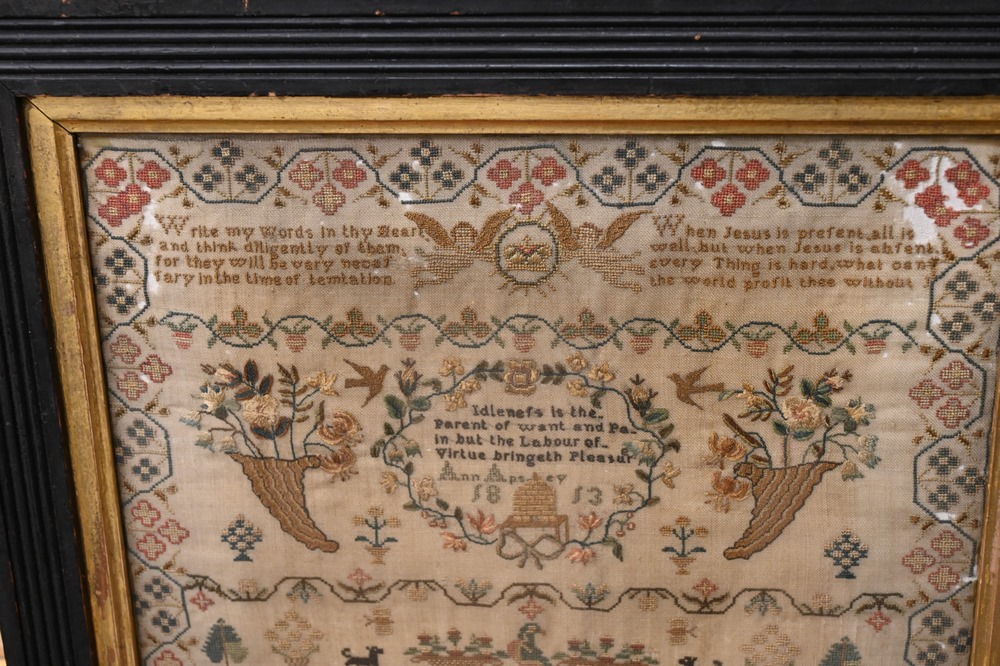 Write my Words in thy Hear
and think diligently of them
for they will be very necef
fary in the time of temtation
When Jesus is prefent all is
well, but when Jesus is abfent
every Thing is hard, what can
the world profit thee without
Idlenefs is the
Parent of want and Pa
in but the Labour of
Virtue bringeth Pleasur
Ann Apsley
1813